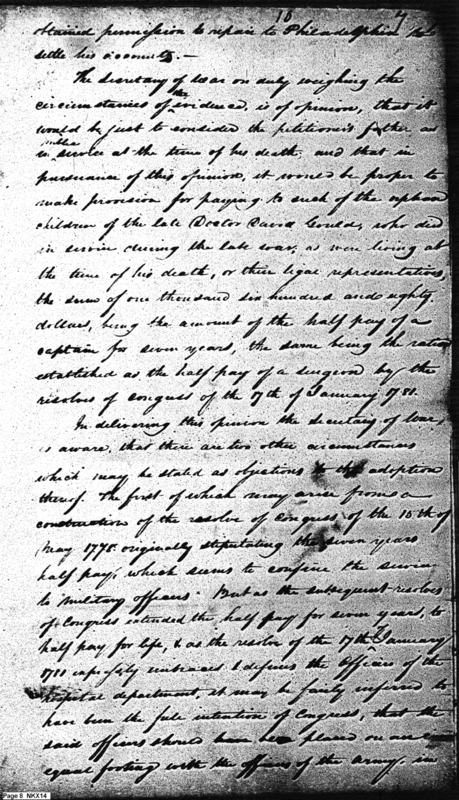 10 4
obtained permission to repair to Philadelphia to
settle his accounts. —
The Secretary of War on duly weighing the
circumstances of the evidence, is of opinion, that it
would be just to consider the petitioner's father as
in public service at the time of his death; and that in
pursuance of this opinion, it would be proper to
make provision for paying to such of the orphan
children of the late Doctor David Gould, who died
in service during the late war, as were living at
the time of his death, or their legal representatives,
the sum of one thousand six hundred and eighty
dollars, being the amount of the half pay of a
captain for seven years, the same being the ratio
established as the half pay of a surgeon by the
resolves of Congress of the 17th of January 1781.
In delivering this opinion the Secretary of War,
is aware, that there are two other circumstances
which may be stated as objections to the adoption
thereof. The first of which may arise from a
construction of the resolve of Congress, of the 15th of
May 1778. originally stipulating the seven years
half pay, which seems to confine the
to military officers. But as the subsequent resolves
of Congress extended the half pay for seven years, to
half pay for life, & as the resolve of the 17th January
1781 expressly embraces & defines the Officers of the
hospital department, it may be fairly inferred to
have been the full intention of Congress, that the
said officers should have been placed on an
equal footing with the officers of the army, in
Page 8 NKX14